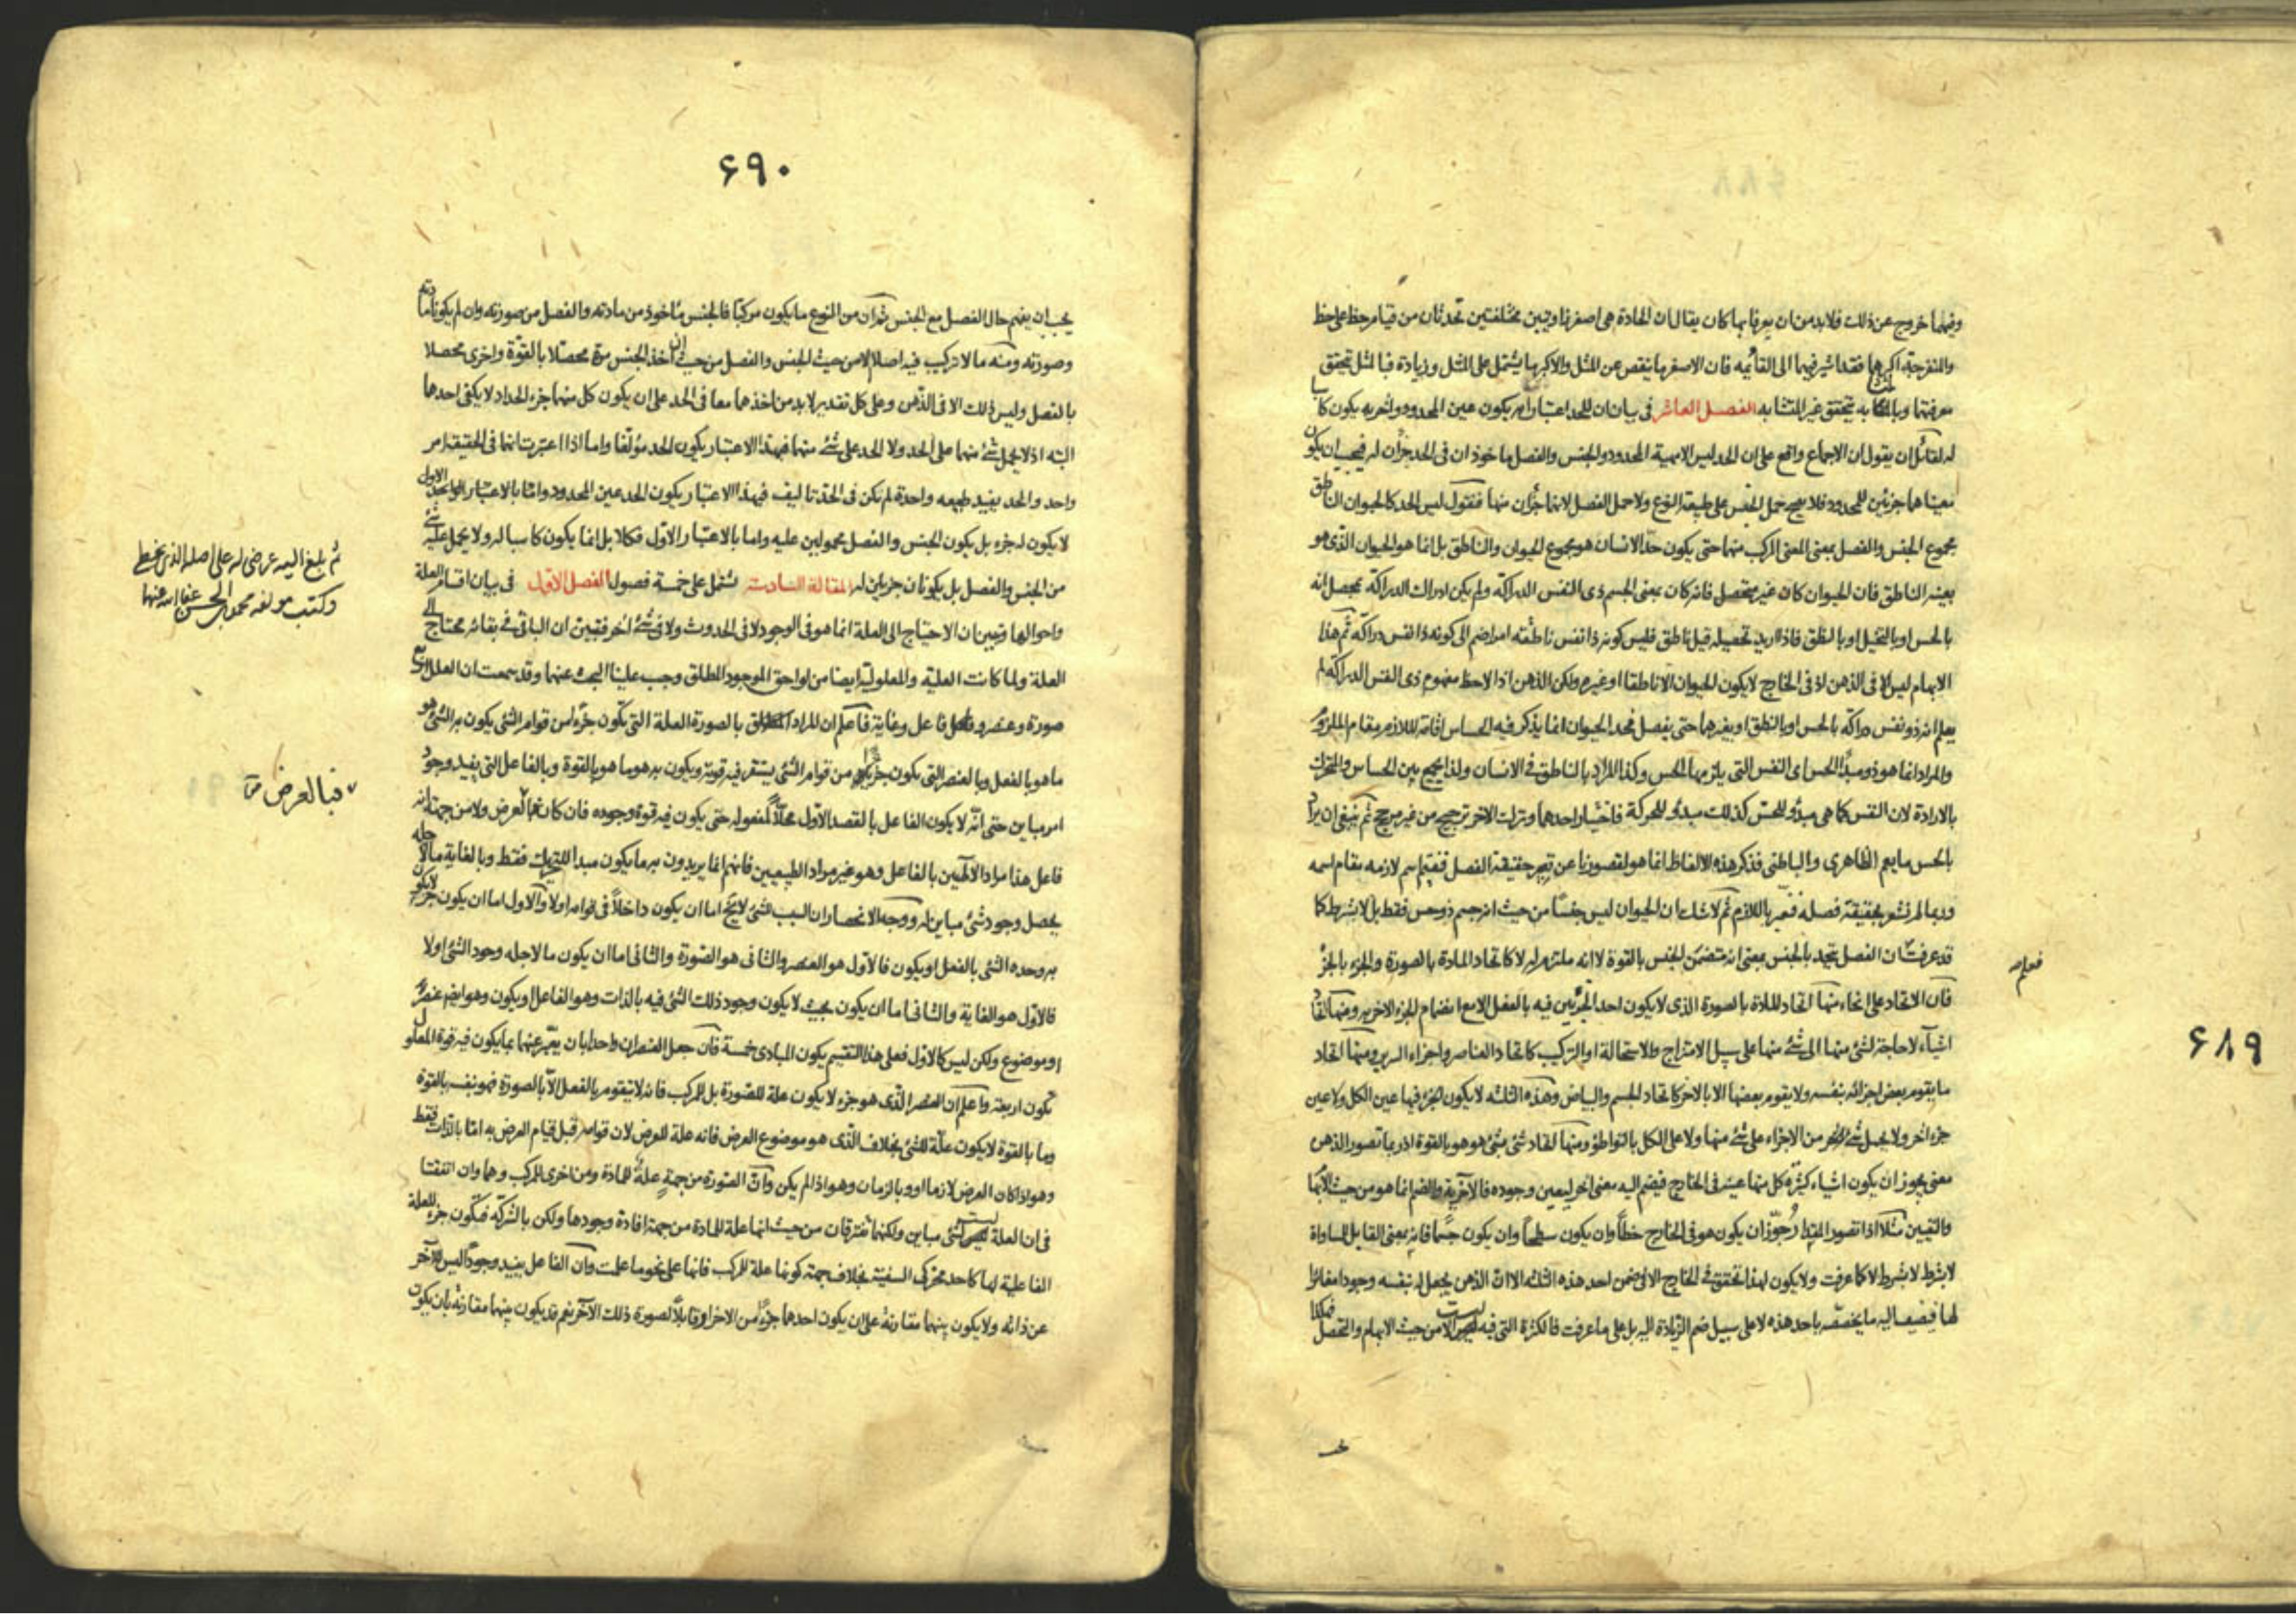 ۶۸۹
وفيهما خروج عن ذلك فلابد من ان يعرفا بها كان يقال ان الحادة هى اصغر زاويتين مختلفتين تحدثان من قيام خط على خط
والمنفرجة اكبرهما فقد اشير فيهما الى القائمه فان الاصغر ما ينقص عن المثل والاكبر ما يشتمل على المثل وزيادة فبالمثل تحقق
معرفتها وبالمتشابه تحقق غير المتشابه الفصل العاشر فى بيان ان للحد اعتبارا به يكون عين المحدود واخر به يكون كاسبا
له لقائل ان يقول ان الاجماع واقع على ان الحد ليس الا مهية المحدود والجنس والفصل ماخوذان فى الحد جزأن له فيجب ان يكون
معناهما جزئين للمحدود فلا يصح حمل الجنس على طبيعة النوع ولا حمل الفصل لانهما جزأن منها فنقول ليس الحد كالحيوان الناطق
مجموع الجنس والفصل بمعنى المعنى المركب منهما حتى يكون حد الانسان هو مجموع الحيوان والناطق بل انما هو الحيوان الذى هو
بعينه الناطق فان الحيوان كان غير متحصل فانه كان بمعنى الجسم ذى النفس الدراكة ولم يكن ادراك الدراكة تحصل انه
بالحس او بالتخيل او بالنطق فاذا اريد تحصيله قيل ناطق فليس كونه ذا نفس ناطقه امرا ضم الى كونه ذا نفس دراكه ثم هذا
الابهام ليس الا فى الذهن اذ فى الخارج لا يكون الحيوان الا ناطقا او غيره ولكن الذهن اذا لاحظ مفهوم ذى النفس الدراكة لم
يعلم انه ذو نفس دراكه بالحس او بالنطق او بغيرهما حتى يفصل فحد الحيوان انما يذكر فيه الحساس اقامة لللازم مقام الملزوم
والمراد انما هو ذو مبدأ الحس اى النفس التى يلزمها الحس وكذا المراد بالناطق فى الانسان ولذا يجمع بين الحساس والمتحرك
بالارادة لان النفس كما هى مبدأ للحس كذلك مبدأ للحركة فاختيار احدهما وترك الاخر ترجيح من غير مرجح ثم ينبغى ان يراد
بالحس ما يعم الظاهرى والباطنى فذكر هذه الالفاظ انما هو لقصورنا عن تعبير حقيقة الفصل فنقيم اسم لازمه مقام اسمه
وربما لم نشعر بحقيقة فصله فنعبر باللازم ثم لا شك ان الحيوان ليس جنسا من حيث انه جسم ذو حس فقط بل لا بشرط كما
قد عرفت ان الفصل يتحد بالجنس بمعنى انه متضمن للجنس بالقوة لا انه ملتزم له لا كاتحاد المادة بالصورة والجزء بالجزء
فان الاتحاد على انحاء منها اتحاد المادة بالصورة الذى لا يكون احد الجزئين فيه بالفعل الا مع انضمام الجزء الاخر به ومنها اتحاد
اشياء لا حاجة لشئ منها الى شئ منها على سبيل الامتزاج والاستحالة او التركيب كاتحاد العناصر واجزاء السرير ومنها اتحاد
ما يقوم بعض اجزائه بنفسه ولا يقوم بعضها الا بالاخر كاتحاد الجسم والبياض وهذه الثلثه لا يكون الجزء فيها عين الكل ولا عين
جزء اخر ولا يحمل شئ من الاجزاء على شئ منها ولا على الكل بالتواطؤ ومنها اتحاد شئ بشئ هو هو بالقوة اذ ربما تصور الذهن
معنى يجوز ان يكون اشياء كثيرة كل منها عينه فى الخارج فيضم اليه معنى اخر ليعين وجوده فالاخرية والضم انما هو من حيث الابهام
والتعيين مثلا اذا تصور المقدار جوز ان يكون هو فى الخارج خطا وان يكون سطحا وان يكون جسما فانه بمعنى القابل للمساواة
لا بشرط لا بشرط لا كما عرفت ولا يكون لهذا تحقق فى الخارج الا فى ضمن احد هذه الثلثه الا ان الذهن يجعل له بنفسه وجودا مغايرا
لها فيضيف اليه ما يخصصه باحد هذه لا على سبيل ضم الزيادة اليه بل على ما عرفت فالكثرة التى فيه ليست الا من حيث الابهام والتحصل فهكذا
۶۹۰
يجب ان يفهم حال الفصل مع الجنس ثم ان من النوع ما يكون مركبا فالجنس ماخوذ من مادته والفصل من صورته وان لم يكونا مادته
وصورته ومنه ما لا تركيب فيه اصلا الا من حيث الجنس والفصل من حيث ان اخذ الجنس مرة محصلا بالقوة واخرى محصلا
بالفصل وليس ذلك الا فى الذهن وعلى كل تقدير لابد من اخذهما معا فى الحد على ان يكون كل منهما جزء الحد اذ لا يكفى احدهما
البته اذ لا يحمل شئ منهما على الحد ولا الحد على شئ منهما فبهذا الاعتبار يكون الحد مؤلفا واما اذا اعتبرت انهما فى الحقيقة امر
واحد والحد يفيد طبيعه واحدة لم تكن فى الحد تاليف فبهذا الاعتبار يكون الحد عين المحدود واما بالاعتبار الاول
لا يكون له جزء بل يكون الجنس والفصل محمولين عليه واما بالاعتبار الاول فكلا بل انما يكون كاسبا له ولا يحمل عليه شئ
من الجنس والفصل بل يكونان جزئين له المقالة السادسة تشتمل على خمسة فصول الفصل الاول فى بيان اقسام العلة
واحوالها وتبين ان الاحتياج الى العلة انما هو فى الوجود لا فى الحدوث ولا فى شئ اخر فتبين ان الباقى فى بقائه محتاج الى
العلة ولما كانت العلية والمعلولية ايضا من لواحق الموجود المطلق وجب علينا البحث عنهما وقد سمعت ان العلل اربع
صورة وعنصر وفاعل وغاية فاعلم ان المراد بالصورة العلة التى تكون جزءا من قوام الشئ يكون به الشئ هو
ما هو بالفعل وبالعنصر التى يكون جزءا من قوام الشئ يستقر فيه قوته ويكون به هو ما هو بالقوة وبالفاعل التى يفيد وجود
امر مباين حتى انه لا يكون الفاعل بالقصد الاول محلا لمفعوله حتى يكون فيه قوة وجوده فان كان فبالعرض ولا من جهة انه
فاعل هذا مراد الالهيين بالفاعل وهو غير مراد الطبيعيين فانهم انما يريدون به ما يكون مبدا للتحريك فقط وبالغاية ما لاجله
يحصل وجود شئ مباين له ووجه الانحصار ان السبب للشئ لا يخ اما ان يكون داخلا فى قوامه اولا والاول اما ان يكون جزء لا يكون
به وحده الشئ بالفعل او يكون فالاول هو العنصر والثانى هو الصورة والثانى اما ان يكون ما لاجله وجود الشئ اولا
فالاول هو الغاية والثانى اما ان يكون بحيث لا يكون وجود ذلك الشئ فيه بالذات وهو الفاعل او يكون وهو ايضم عنصر
او موضوع ولكن ليس كالاول فعلى هذا التقسيم يكون المبادى خمسة فان جعل العنصران واحدا بان يعبر عنهما بما يكون فيه قوة المعلول
تكون اربعة واعلم ان العنصر الذى هو جزء لا يكون علة للصورة بل للمركب فانه لا يتقوم بالفعل الا بالصورة فهو بنفسه بالقوة
وما بالقوة لا يكون علة للشئ بخلاف الذى هو موضوع العرض فانه علة للعرض لان قوامه قبل قيام العرض به اما بالذات فقط
وهو اذا كان العرض لازما او وبالزمان وهو اذا لم يكن وان الصورة من جهة علة للمادة ومن اخرى للمركب وهما وان اتفقتا
فى ان العلة ليست لشئ مباين ولكنهما تفترقان من حيث انها علة للمادة من جهة افادة وجودها ولكن بالشركة فتكون جزء للعلة
الفاعلية لها كاحد محركى السفينة بخلاف جهة كونها علة للمركب فانها على نحو ما علمت وان الفاعل يفيد وجودا ليس للاخر
عن ذاته ولا يكون بينهما مقارنة على ان يكون احدهما جزءا من الاخر او قابلا لصورة ذلك الاخر نعم قد يكون بينهما مقارنة بان يكون
ثم بلغ اليه عرضى له على اصله الذى بخطى
وكتب مولفه محمد بن الحسن عفا الله عنهما
فبالعرض